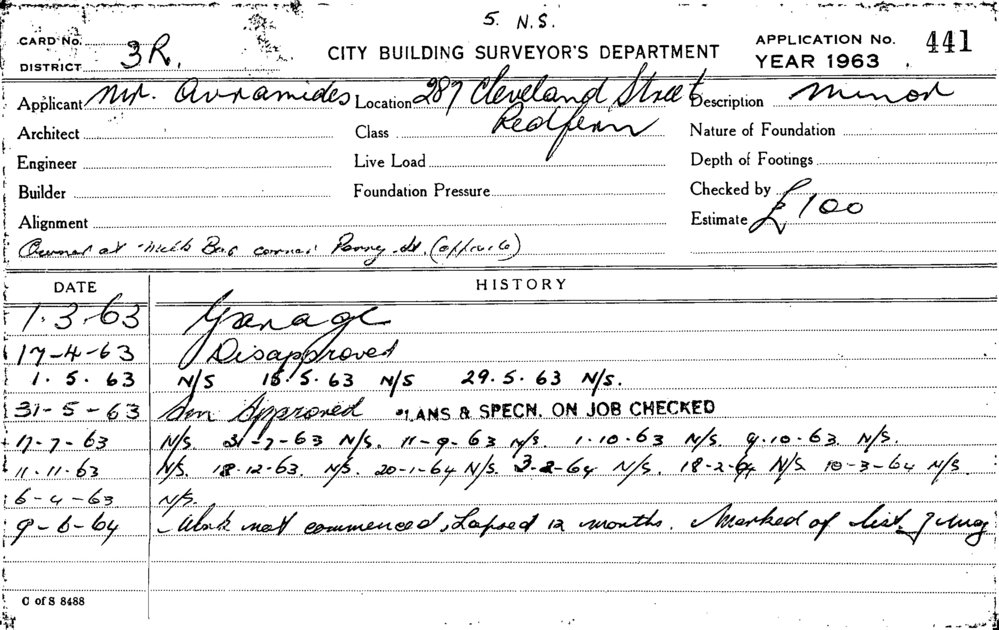 5. N.S.
CARD No.
DISTRICT 3R.
CITY BUILDING SURVEYOR'S DEPARTMENT
APPLICATION No. 441
YEAR 1963
Applicant Mr. Avramides Location 287 Cleveland Street Description Minor
Redfern
Architect Class Nature of Foundation
Engineer Live Load Depth of Footings
Builder Foundation Pressure Checked by
Alignment Estimate £100
Owner at Milk Bar corner St. (opposite)
DATE HISTORY
1.3.63 Garage
17-4-63 Disapproved
1.5.63 N/S 15.5.63 N/S 29.5.63 N/S.
31-5-63 Approved PLANS & SPECN. ON JOB CHECKED
17-7-63 N/S. 31-7-63 N/S. 11-9-63 N/S. 1.10.63 N/S. 9.10.63. N/S.
11.11.63 N/S. 18.12.63. N/S. 20-1-64 N/S. 3-2-64 N/S. 18-2-64 N/S. 10-3-64 N/S.
6-4-63 N/S.
9-6-64 Work not commenced, Lapsed 12 months. Marked of list.
C of S 8488